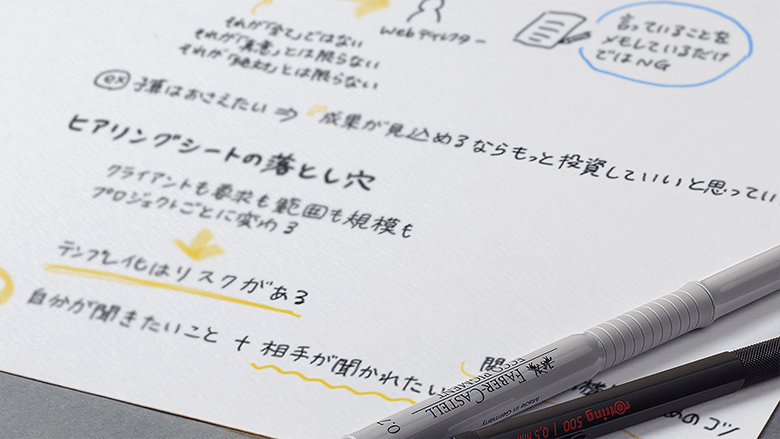 それが「全て」ではない
それが「真意」とは限らない
それが「絶対」とは限らない
Webディレクター
言っていることを
メモしているだけ
ではNG
ex 予算はおさえたい ⇒ 成果が見込めるならもっと投資していいと思ってい
ヒアリングシートの落とし穴
クライアントも要求も範囲も規模も
プロジェクトごとに変わる
テンプレ化はリスクがある
自分が聞きたいこと + 相手が聞かれたい
のコツ
FABER-CASTELL
ECCO PIGMENT
Made in Germany
0.7
rotring 500 0.5